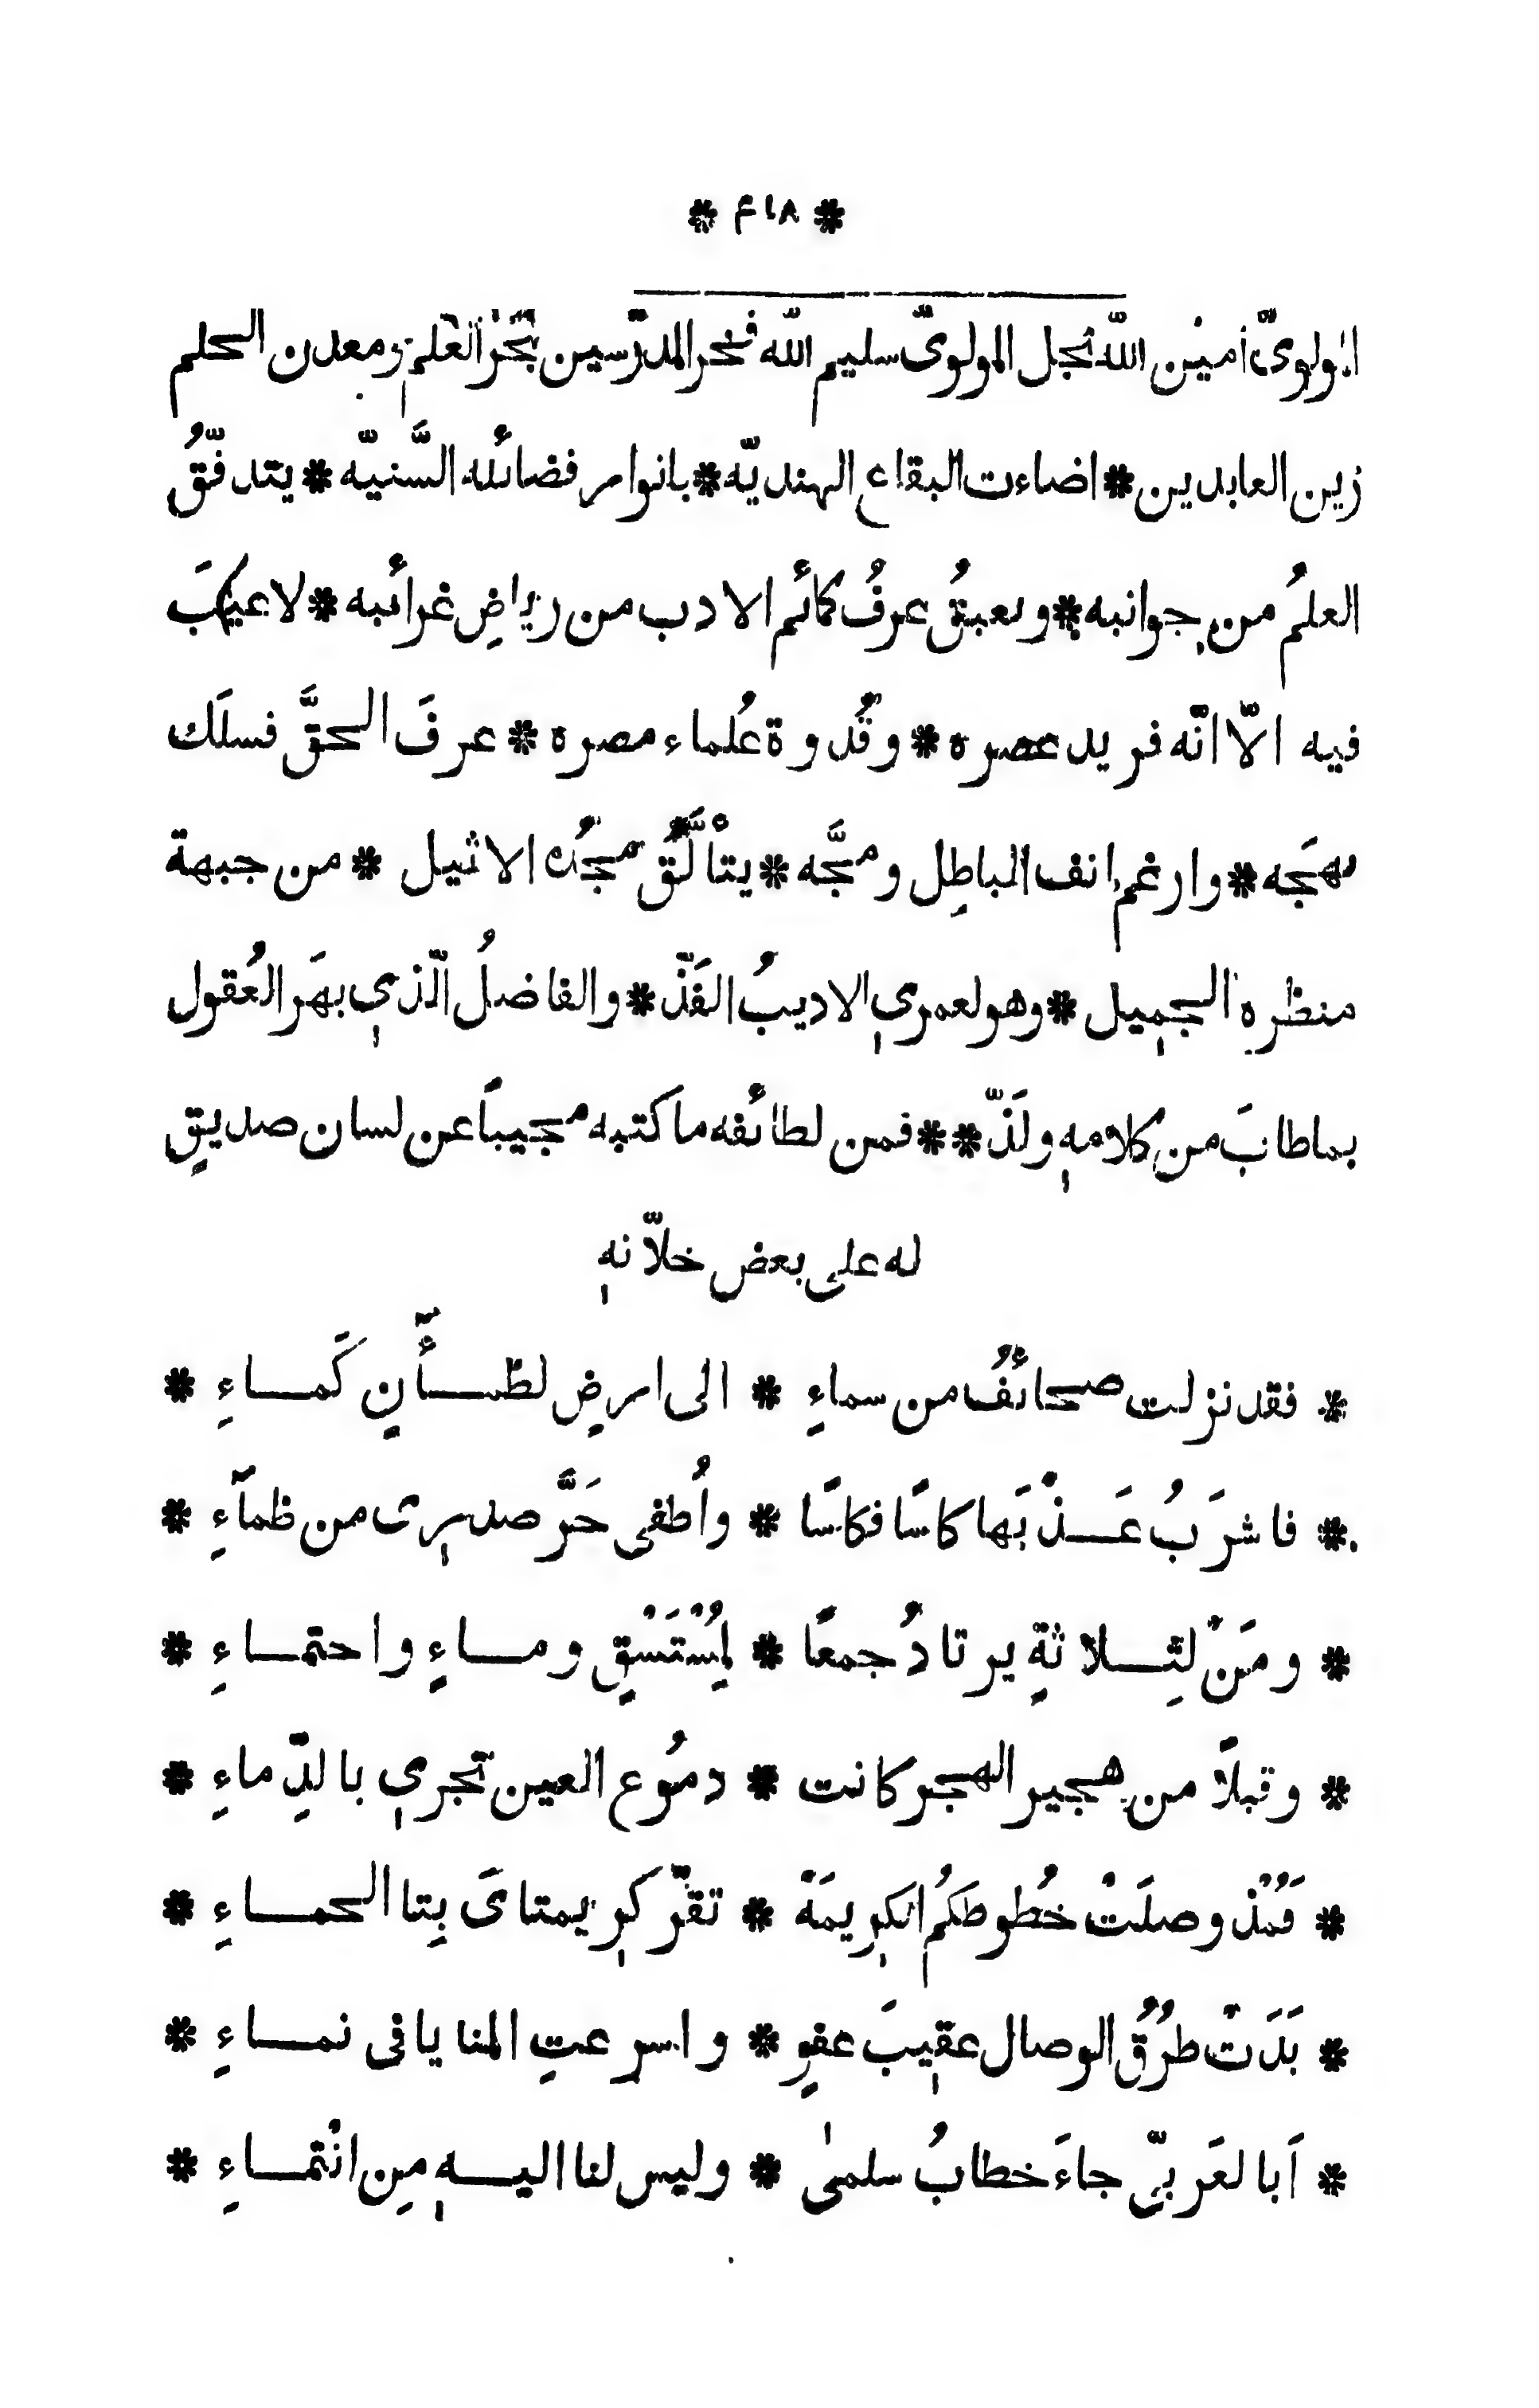 * ٤١٨ *
المولويّ امين اللّه نجل المولويّ سليم اللّه فخر المدرّسين بَحْرُ العْلم ومعدن الحلم
زين العابدين * اضاءت البقاع الهنديّه * بانوار فضائله السَّنيّه * يتدفّقُ
العلمُ من جوانبه * ويعبقُ عرفُ كمائم الادب من رياضِ غرائبه * لا عيبَ
فيه الاّ انّه فريد عصره * وقُدوة عُلماء مصره * عرفَ الحقَّ فسلَك
نهجَه * وارغم انف الباطِل ومجَّه * يتأْلَّقُ مجدُه الاثيل * من جبهة
منظره الجميل * وهو لعمري الاديبُ الفَذّ * والفاضلُ الّذي بهَر العُقول
بما طابَ من كلامهِ ولَذّ ** فمن لطائفه ما كتبه مجيباً عن لسان صديقٍ
له على بعض خلاّنهِ
* فقد نزلت صحائفُ من سماءِ * الى ارضٍ لظمأٓنٍ كَماءِ *
* فاشرَبُ عَذْبَها كاسًا فكاسًا * واُطفى حَرَّ صدرِى من ظمآءِ *
* ومَنْ لثِلاثةٍ يرتادُ جمعًا * لِمُسْتَسْقٍ وماءٍ واحتماءِ *
* وقبلاً من هجير الهجر كانت * دمُوع العين تجري بالدِّماءِ *
* فَمُنْذ وصلَتْ خُطوطكُم الكرِيمَهْ * تقرّ كرِيمتايَ بِتا الحماءِ *
* بَدَتْ طرُقُ الوصال عقيبَ عفوٍ * واسرعتِ المنايا فى نماءِ *
* اَبا لعَربيّ جاءَ خطابُ سلمىٰ * وليس لنا اليهِ مِن انْتماءِ *